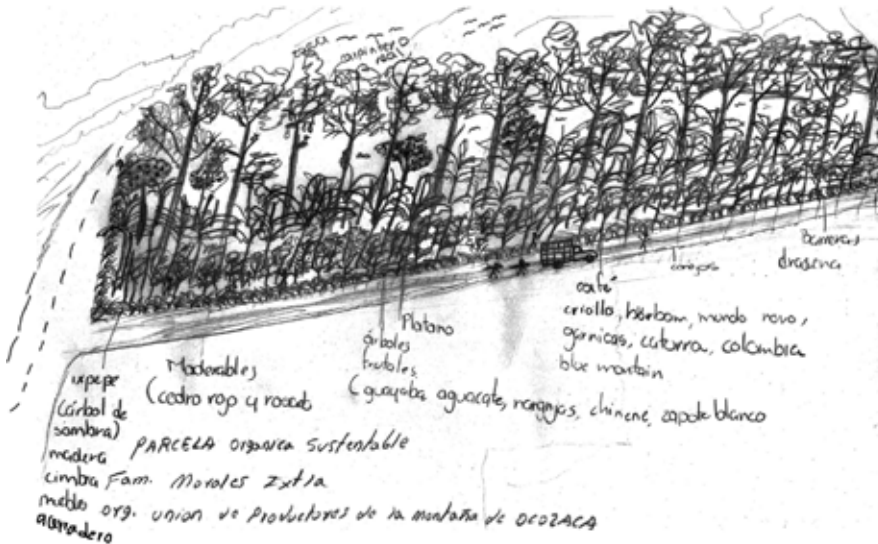 carpintero
real
Barreras
drasena
café
criollo, borbom, mundo novo,
garnicas, caturra, colombia
blue montain
Platano
árboles
frutales
(guayaba, aguacate, naranjas, chinene, zapote blanco
Maderables
(cedro rojo y rosado
ixpepe
(árbol de
sombra)
madera
cimbra
mueble
PARCELA organica sustentable
Fam. Morales Ixtla
org. union de Productores de la montaña de OCOZACA